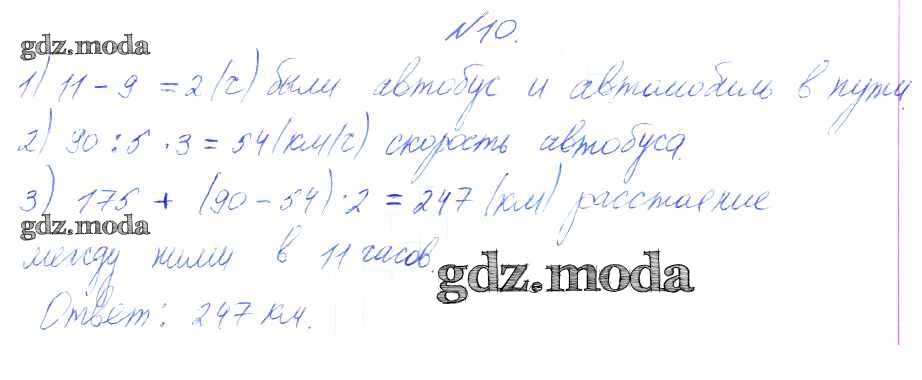 №10.
gdz.moda
1) 11 - 9 = 2 (ч) были автобус и автомобиль в пути.
2) 90 : 5 · 3 = 54 (км/ч) скорость автобуса.
3) 175 + (90 - 54) · 2 = 247 (км) расстояние
gdz.moda
между ними в 11 часов.
gdz.moda
Ответ: 247 км.